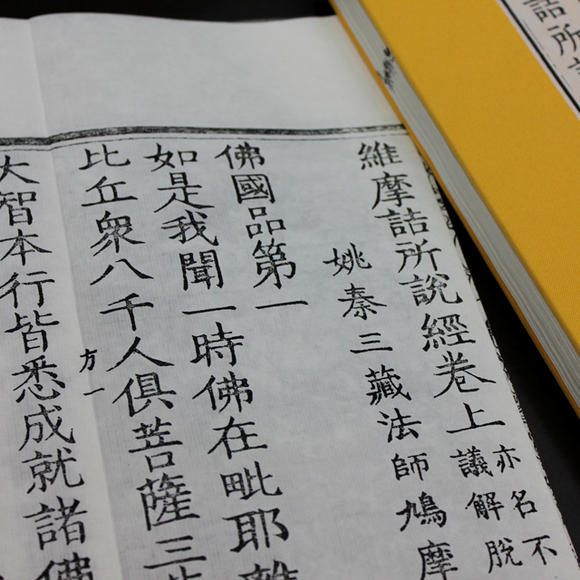 維摩詰所說經卷上
亦名不
議解脫
姚秦三藏法師鳩摩
佛國品第一
如是我聞一時佛在毗耶離
比丘衆八千人俱菩薩三
方一
大智本行皆悉成就諸佛
詰所